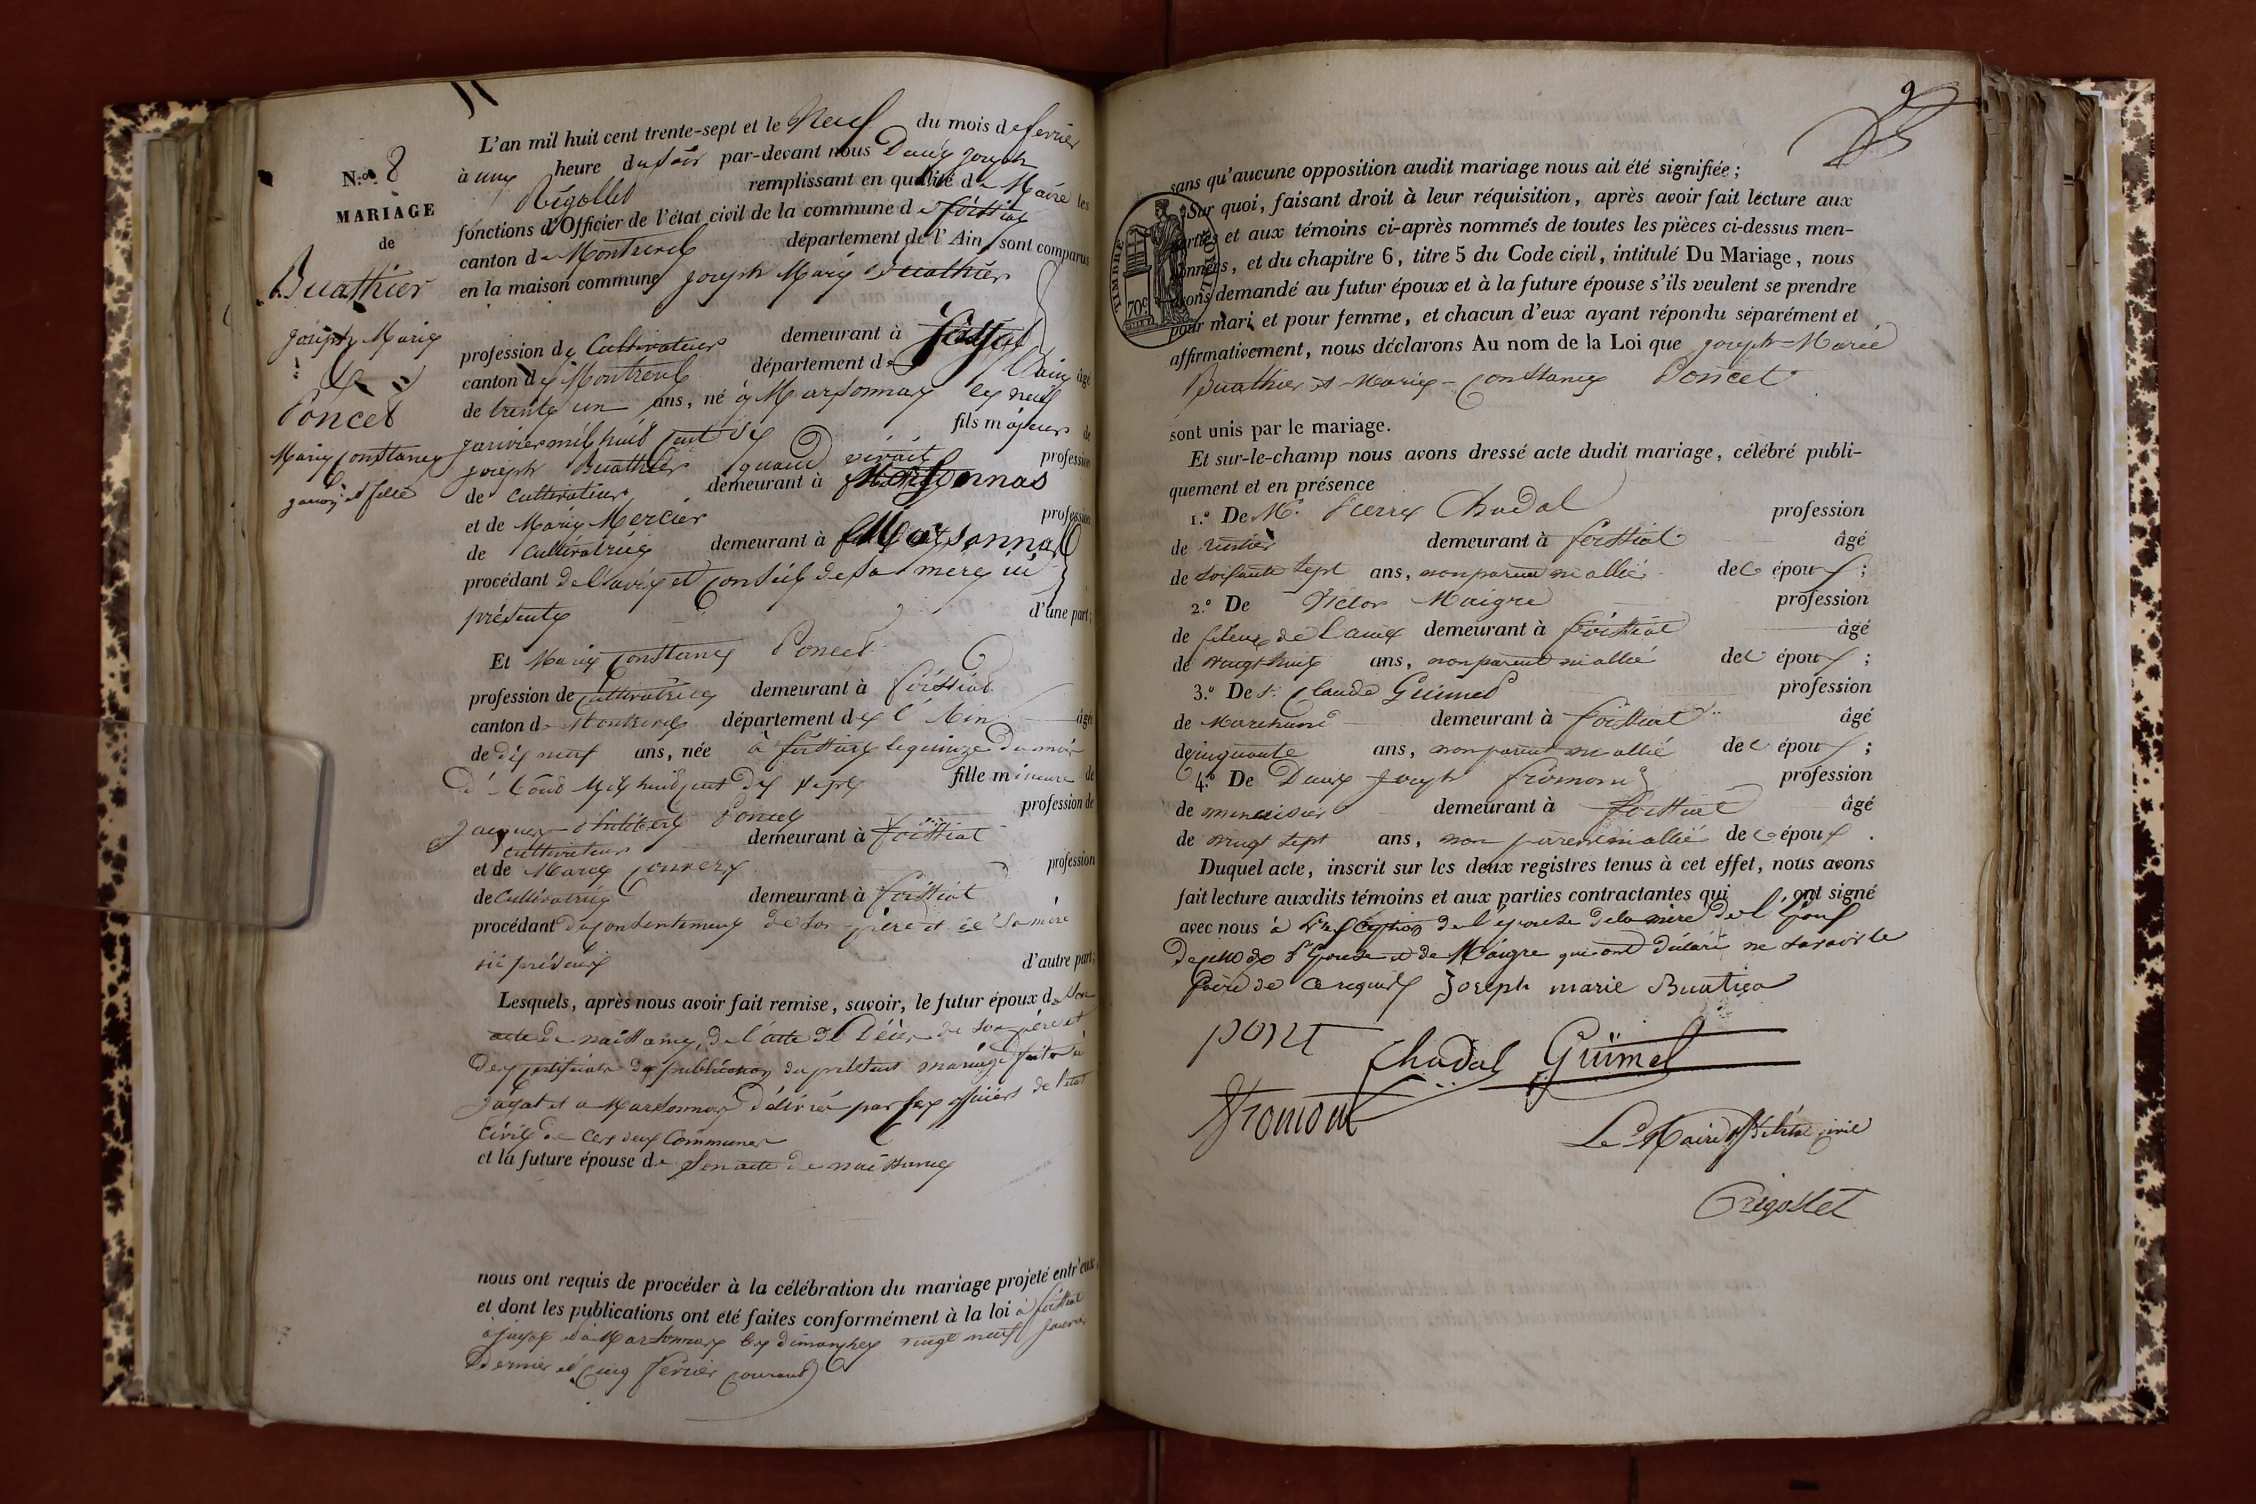 N.º 8
MARIAGE
de
Buathier
joseph Marie
&
Poncet
Marie Constance
garçon et fille
L'an mil huit cent trente-sept et le Neuf du mois de fevrier
à une heure du soir par-devant nous Denis joseph
Régollet remplissant en qualité de Maire les
fonctions d'Officier de l'état civil de la commune de foissiat
canton de Montrevel département de l'Ain, sont comparus
en la maison commune joseph Marie Buathier
profession de Cultivateur demeurant à foissiat
canton de Montrevel département de l'ain âgé
de trente un ans, né à Marsonnas le neuf
janvier mil huit cent six fils majeur de
joseph Buathier quand vivait profession
de cultivateur demeurant à Marsonnas
et de Marie Mercier profession
de cultivatrice demeurant à Marsonnas
procédant de l'avis et conseil de sa mere ici
présente d'une part;
Et Marie Constance Poncet
profession de cultivatrice demeurant à foissiat
canton de Montrevel département de l'Ain âgée
de dix neuf ans, née à foissiat le quinze du mois
d'Août Mil huit cent dix sept fille mineure de
jacques philibert Poncet profession de
cultivateur demeurant à foissiat
et de Marie profession
de cultivatrice demeurant à foissiat
procédant du consentement de son père et de sa mère
ici présents d'autre part;
Lesquels, après nous avoir fait remise, savoir, le futur époux de son
acte de naissance, de l'acte de décès de son père et
des certificats de publication du présent mariage faite à
jayat et a Marsonnas délivrés par les officiers de l'état
civil de ces deux Communes
et la future épouse de son acte de naissance
nous ont requis de procéder à la célébration du mariage projeté entr'eux,
et dont les publications ont été faites conformément à la loi à foissiat
à jayat et à Marsonnas les dimanches vingt neuf janvier
dernier et cinq fevrier courant
9
sans qu'aucune opposition audit mariage nous ait été signifiée;
Sur quoi, faisant droit à leur réquisition, après avoir fait lecture aux
parties et aux témoins ci-après nommés de toutes les pièces ci-dessus men-
tionnées, et du chapitre 6, titre 5 du Code civil, intitulé Du Mariage, nous
avons demandé au futur époux et à la future épouse s'ils veulent se prendre
pour mari et pour femme, et chacun d'eux ayant répondu séparément et
affirmativement, nous déclarons Au nom de la Loi que joseph-Marie
Buathier et Marie-Constance Poncet
TIMBRE ROYAL
70c
sont unis par le mariage.
Et sur-le-champ nous avons dressé acte dudit mariage, célébré publi-
quement et en présence
1.º De M. Pierre Chadal profession
de rentier demeurant à foissiat âgé
de soixante sept ans, non parent ni allié de l'époux;
2.º De Victor Maigre profession
de fileur de laine demeurant à foissiat âgé
de vingt huit ans, non parent ni allié de l'époux;
3.º De Sr. Claude Guimet profession
de Marchand demeurant à foissiat âgé
de cinquante ans, non parent ni allié de l'époux;
4.º De Denis joseph fromont profession
de menuisier demeurant à foissiat âgé
de vingt sept ans, non parent ni allié de l'époux.
Duquel acte, inscrit sur les deux registres tenus à cet effet, nous avons
fait lecture auxdits témoins et aux parties contractantes qui ont signé
avec nous à l'exception de l'epouse de la mere de l'époux
de celle de l'épouse et de Maigre qui ont déclaré ne savoir le
faire de ce requis Joseph marie Buatier
pont Chadal Guimet
fromont
Le Maire off. de l'état civil
Regollet